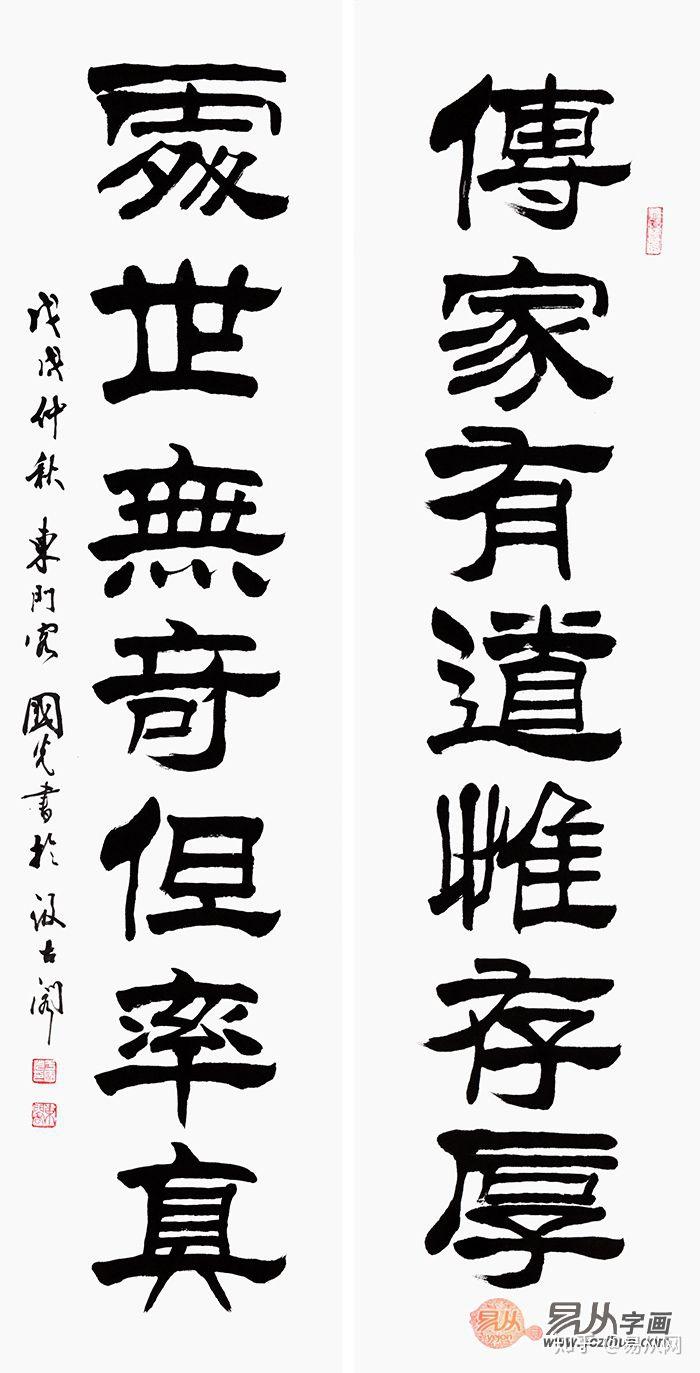 傳家有道惟存厚
處世無奇但率真
戊戌仲秋 東門客 國光書於汲古閣
易从字画
yizyon
www.yczihua.com
知乎 @易从网